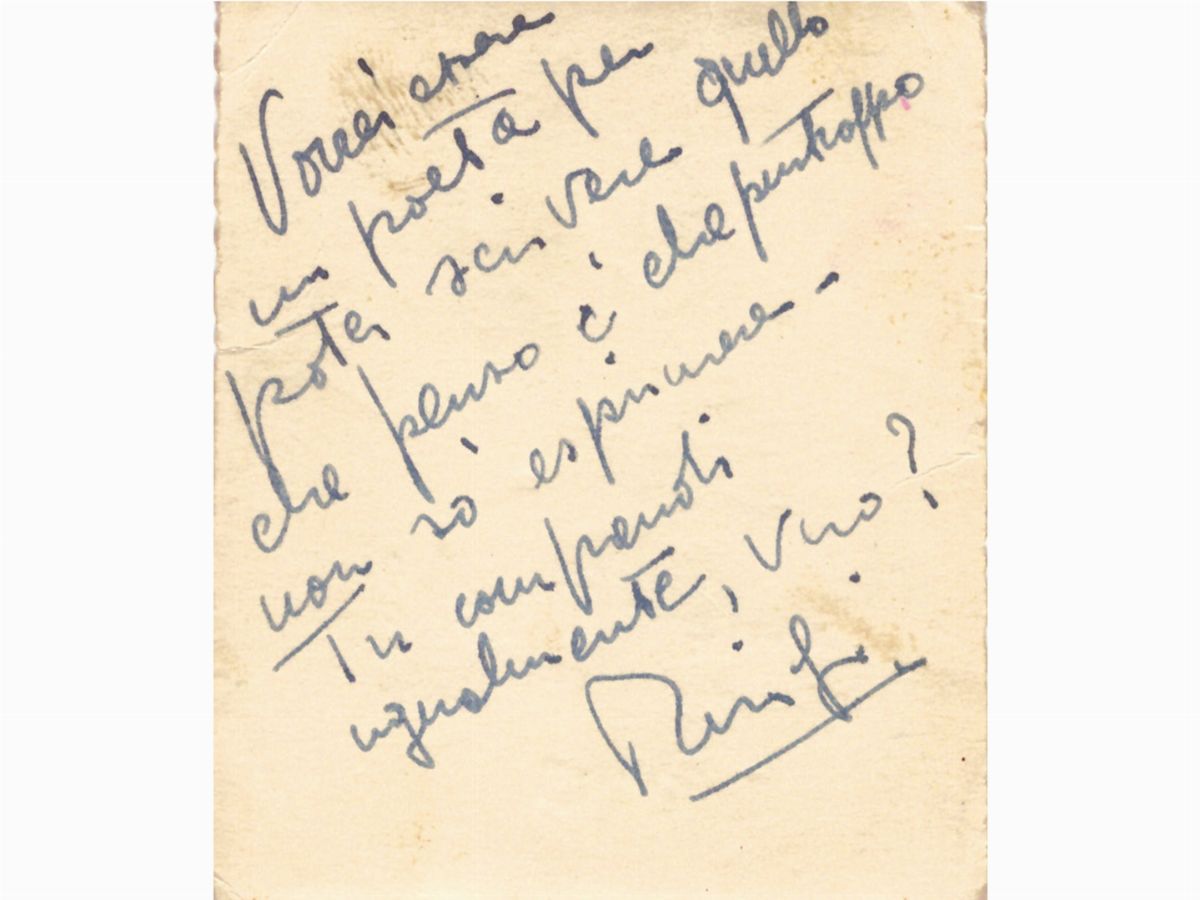 Vorrei essere
un poeta per
poter scrivere quello
che penso è che purtroppo
non sò esprimere -
Tu comprendi
ugualmente, vero?